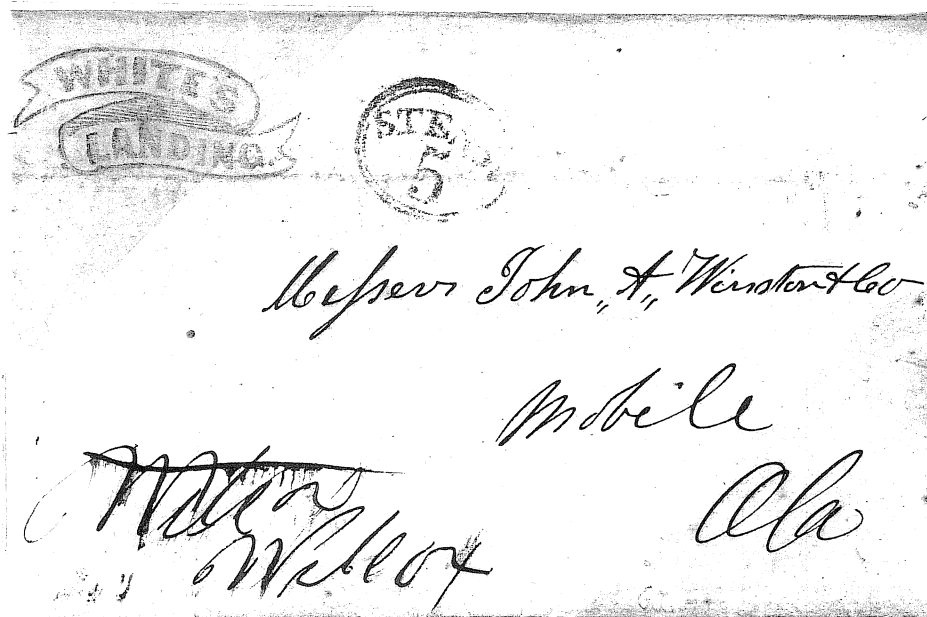 WHITE'S
LANDING.
STEA
5
Messers John „A„ Winston & Co
Mobile
Ala
Wilcox